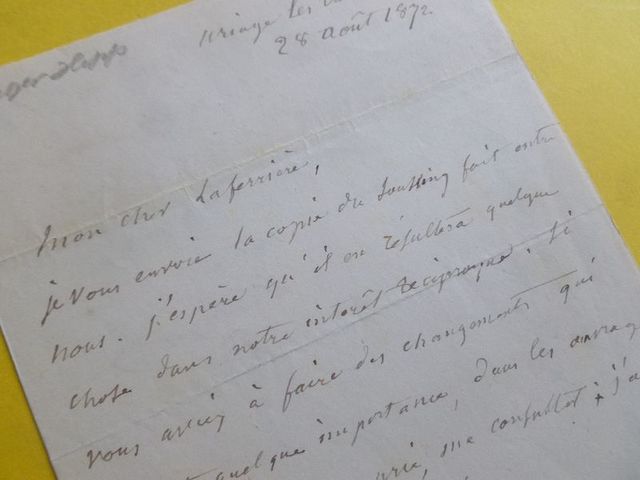 Uriage les
28 août 1872.
Mon cher Laferrière,
je vous envoie la copie du sousseing fait entre
nous. j'espère qu'il en résultera quelque
chose dans notre intérêt réciproque. Si
vous aviez à faire des changements qui
quelque importance, dans les ouvrag
me consulter; j'a